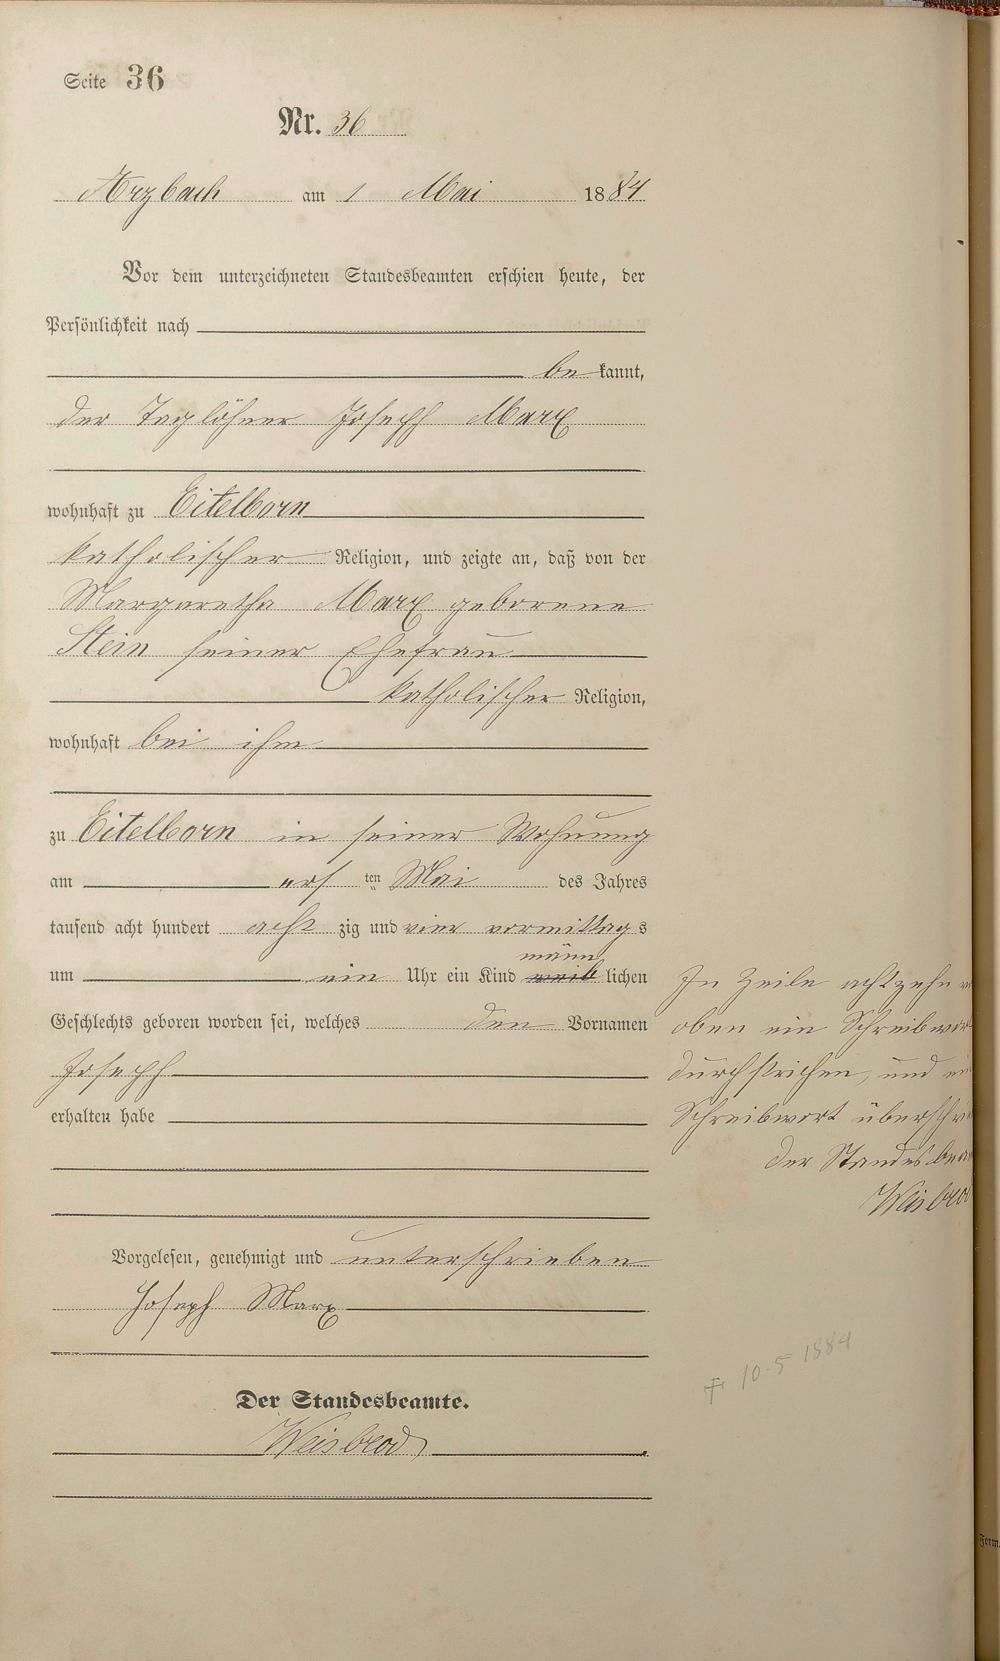 Seite 36
Nr. 36
Arzbach am 1 Mai 1884
Vor dem unterzeichneten Standesbeamten erschien heute, der
Persönlichkeit nach
bekannt,
der Taglöhner Joseph Marx
wohnhaft zu Eitelborn
katholischer Religion, und zeigte an, daß von der
Margaretha Marx geborene
Stein seiner Ehefrau
katholischer Religion,
wohnhaft bei ihm
zu Eitelborn in seiner Wohnung
am ersten Mai des Jahres
tausend acht hundert achtzig und vier vormittags
männ
um ein Uhr ein Kind weiblichen
Geschlechts geboren worden sei, welches den Vornamen
Joseph
erhalten habe
Vorgelesen, genehmigt und unterschrieben
Joseph Marx
Der Standesbeamte.
Weisbrod
In Zeile achtzehn v
oben ein Schreibwor
durchstrichen, und ei
Schreibwort überschri
der Standesbea
Weisbro
10-5 1884
Form.